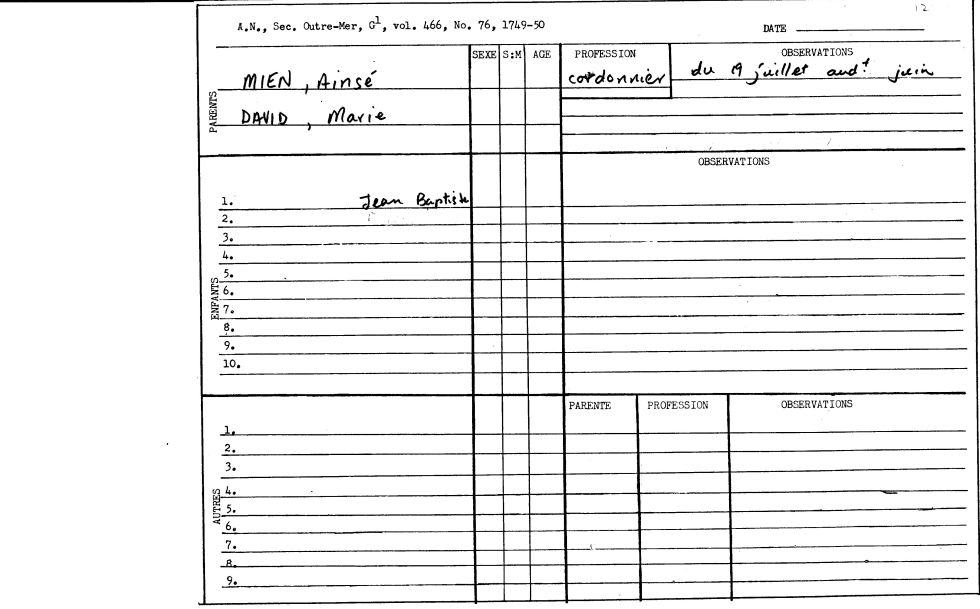 12
A.N., Sec. Outre-Mer, G1, vol. 466, No. 76, 1749-50 DATE
SEXE S:M AGE PROFESSION OBSERVATIONS
MIEN, Ainsé cordonnier du 19 juillet aud.t juin
PARENTS
DAVID, Marie
OBSERVATIONS
1. Jean Baptiste
2.
3.
4.
5.
ENFANTS
6.
7.
8.
9.
10.
PARENTE PROFESSION OBSERVATIONS
1.
2.
3.
4.
AUTRES
5.
6.
7.
8.
9.